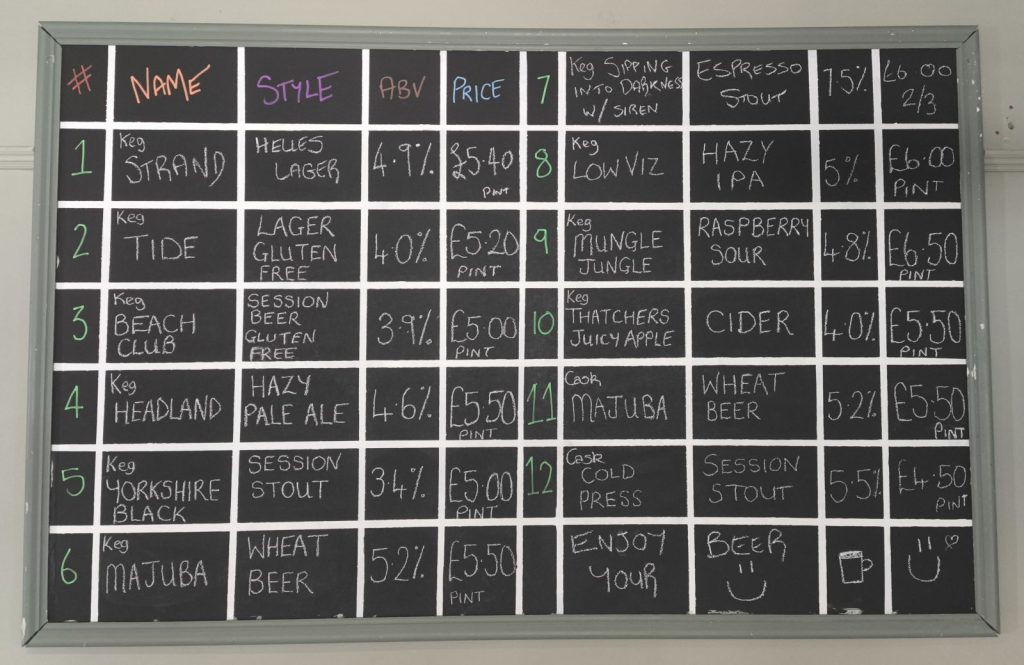 # NAME STYLE ABV PRICE
1 Keg STRAND HELLES LAGER 4.9% £5.40 PINT
2 Keg TIDE LAGER GLUTEN FREE 4.0% £5.20 PINT
3 Keg BEACH CLUB SESSION BEER GLUTEN FREE 3.9% £5.00 PINT
4 Keg HEADLAND HAZY PALE ALE 4.6% £5.50 PINT
5 Keg YORKSHIRE BLACK SESSION STOUT 3.4% £5.00 PINT
6 Keg MAJUBA WHEAT BEER 5.2% £5.50 PINT
7 Keg SIPPING INTO DARKNESS W/ SIREN ESPRESSO STOUT 7.5% £6.00 2/3
8 Keg LOW VIZ HAZY IPA 5% £6.00 PINT
9 Keg MUNGLE JUNGLE RASPBERRY SOUR 4.8% £6.50 PINT
10 Keg THATCHERS JUICY APPLE CIDER 4.0% £5.50 PINT
11 Cask MAJUBA WHEAT BEER 5.2% £5.50 PINT
12 Cask COLD PRESS SESSION STOUT 5.5% £4.50 PINT
ENJOY YOUR BEER